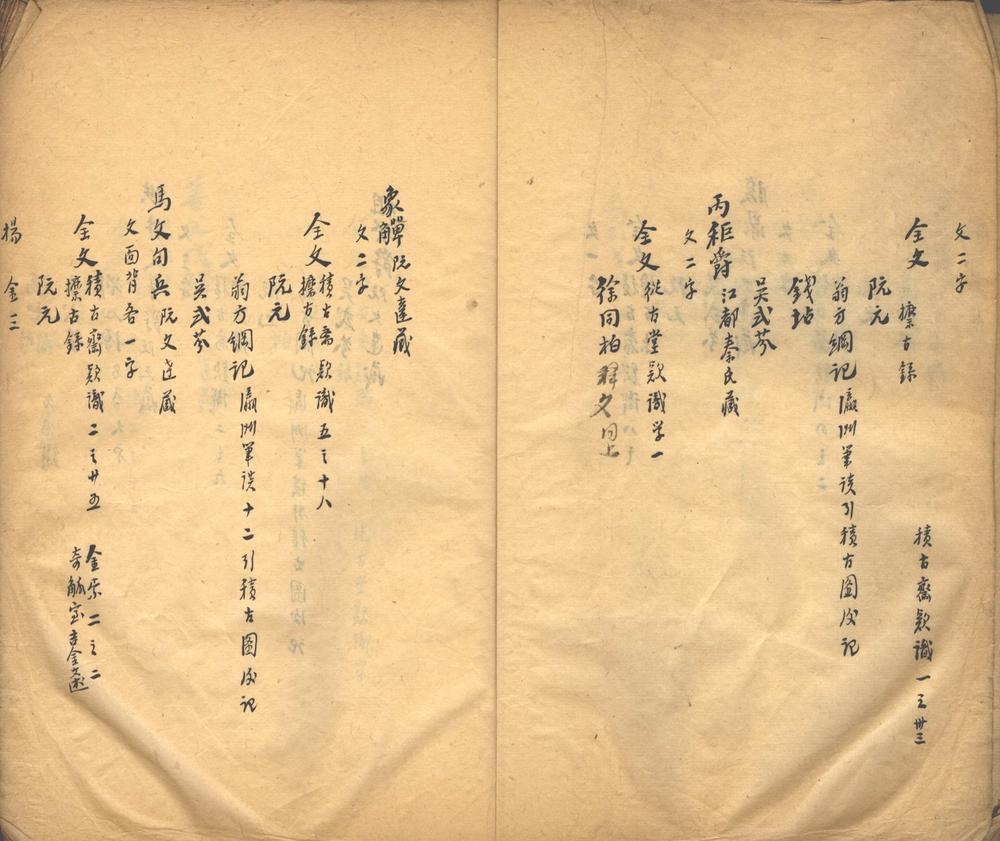 文二字
全文 攈古錄 積古齋款識一之卅三
阮元
翁方綱記瀛洲筆談引積古圖後記
錢坫
吳式芬
丙秬爵 江都秦氏藏
文二字
全文 從古堂款識学一
徐同柏 釋文同上
象觶 阮文達藏
文二字
全文 積古齋款識五之十八
攈古錄
阮元
翁方綱記瀛洲筆談十二引積古圖後記
吳式芬
馬文句兵 阮文达藏
文面背各一字
全文 積古齋款識二之廿五 金索二之二
攈古錄 奇觚室吉金文述
阮元
楊 金三